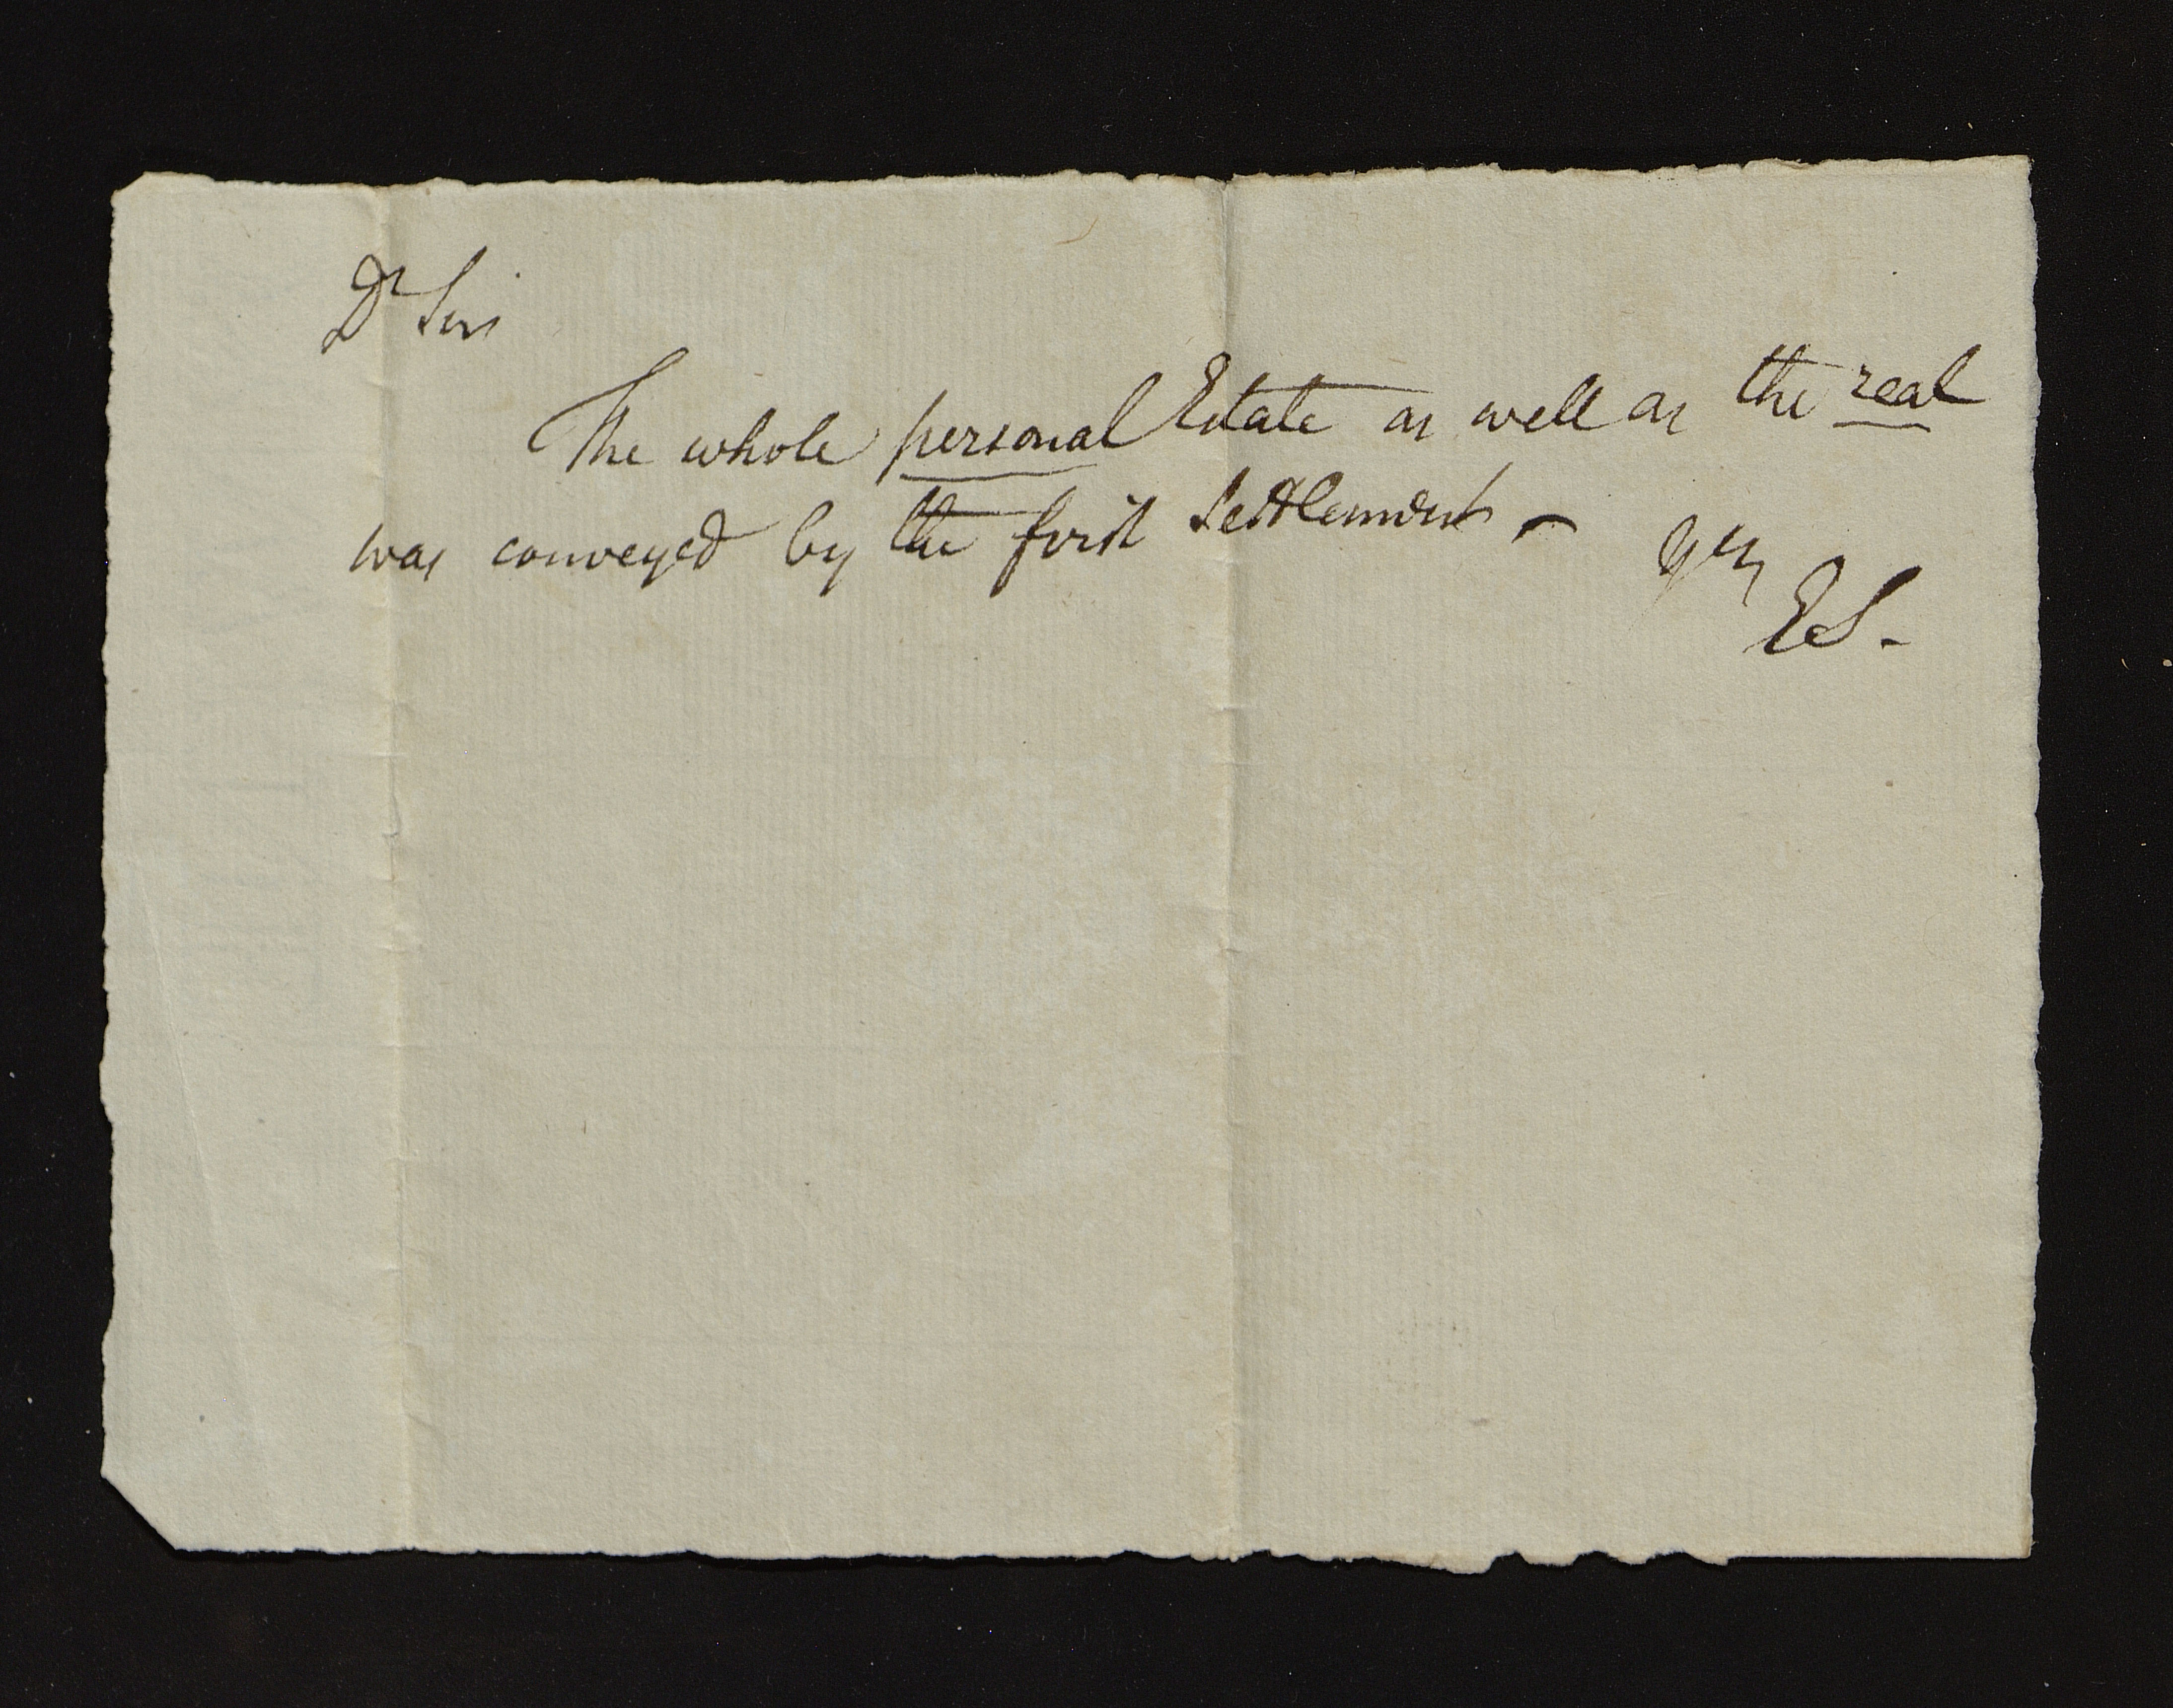 Dr Sir
The whole personal Estate as well as the real
was conveyed by the first Settlement - yrs
ES -